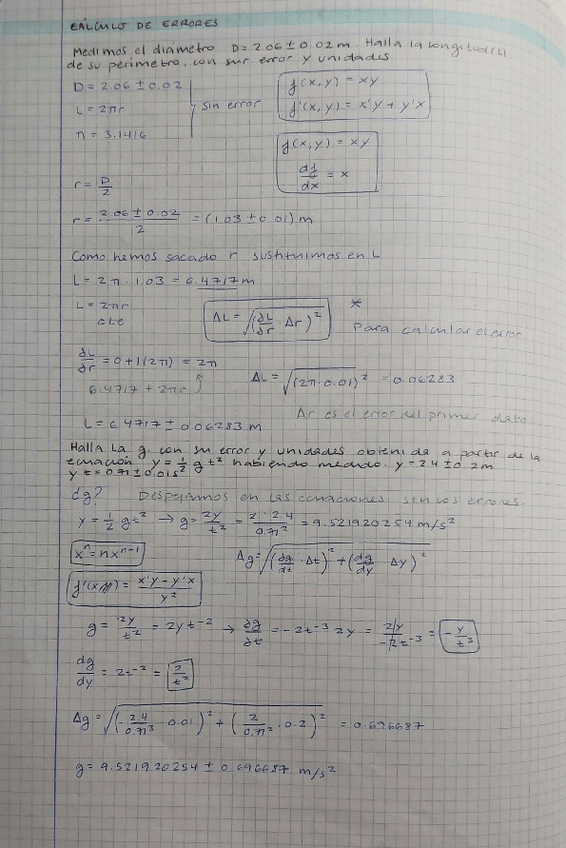 CÁLCULO DE ERRORES
Medimos el diametro D = 2.06 ± 0.02 m. Halla la longitud (L)
de su perímetro, con sur error y unidades
D = 2.06 ± 0.02
L = 2πr
sin error
π = 3.1416
f(x,y) = xy
f'(x,y) = x'y + y'x
f(x,y) = xy
df/dx = x
r = D/2
r = 2.06 ± 0.02 / 2 = (1.03 ± 0.01) m
Como hemos sacado r sustituimos en L
L = 2π · 1.03 = 6.4717 m
L = 2πr
cte
ΔL = √(∂L/∂r · Δr)²
*
Para calcular el error
∂L/∂r = 0 + 1(2π) = 2π
6.4717 + 2πr
ΔL = √(2π·0.01)² = 0.06283
Δr es el error del primer dato
L = 6.4717 ± 0.06283 m
Halla la g con su error y unidades obtenida a partir de la
ecuación y = 1/2 g t² habiendo medido. y = 2.4 ± 0.2m
y t = 0.71 ± 0.01 s
¿g? Despejamos en las ecuaciones sin los errores.
y = 1/2 gt² → g = 2y/t² = 2 · 2.4/0.71² = 9.521920254 m/s²
xⁿ = nxⁿ⁻¹
Δg = √(∂g/∂t · Δt)² + (∂g/∂y · Δy)²
f'(x,y) = x'y - y'x / y²
g = 2y/t² = 2yt⁻² → ∂g/∂t = -2t⁻³ 2y = 2y/-2t⁻³ = -y/t³
dg/dy = 2t⁻² = 2/t²
Δg = √(-2.4/0.71³ · 0.01)² + (2/0.71² · 0.2)² = 0.696687
g = 9.521920254 ± 0.696687 m/s²